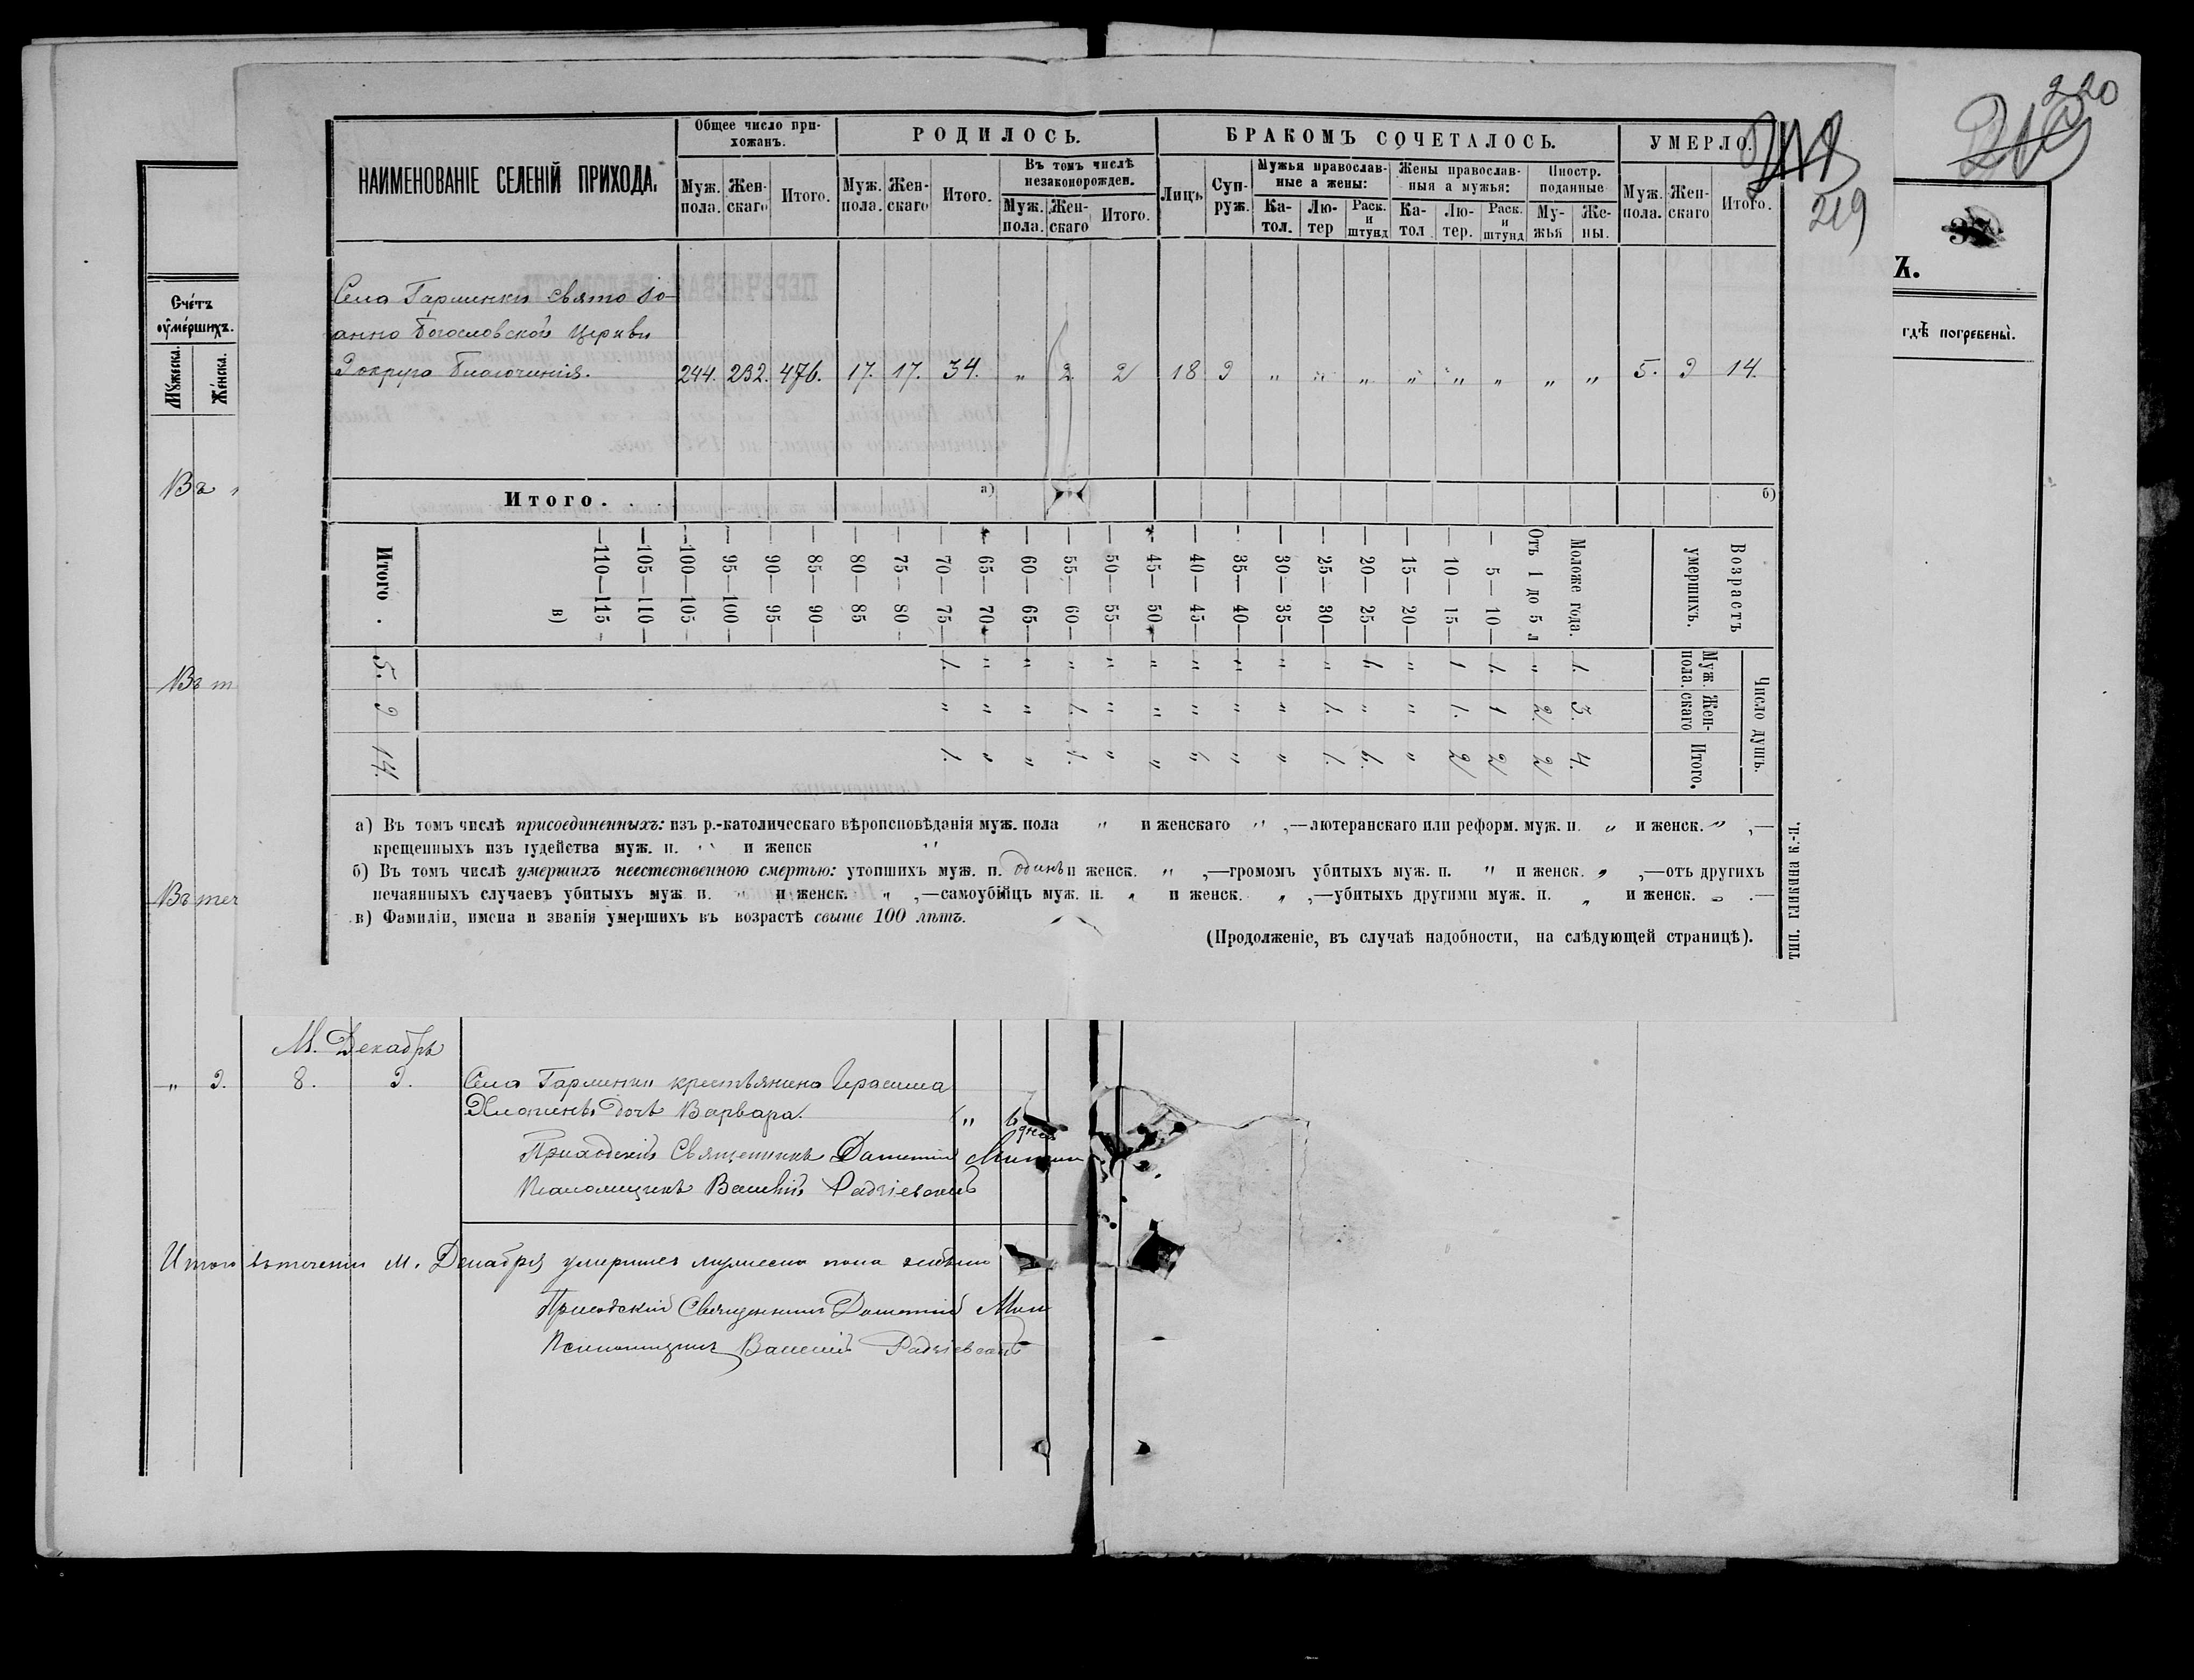 220
219
НАИМЕНОВАНІЕ СЕЛЕНІЙ ПРИХОДА.
Общее число прихожанъ.
РОДИЛОСЬ.
БРАКОМЪ СОЧЕТАЛОСЬ.
УМЕРЛО.
Муж. пола. Женскаго Итого.
Муж. пола. Женскаго Итого.
Въ томъ числѣ незаконорожден.
Муж. пола. Женскаго Итого.
Лицъ Супруж.
Мужья православные а жены:
Катол. Лютер Раск. и штунд
Жены православныя а мужья:
Катол Лютер. Раск. и штунд
Иностр. подданные
Мужья Жены.
Муж. пола. Женскаго Итого.
Села Гарминки свято Іо-
анно Богословской Церкви
округа Благочинія. 244. 232. 476. 17. 17. 34. " 2 2 18 9 " " " " " " " " 5. 9 14.
Итого. . . а) б)
Возрастъ умершихъ.
Число душъ.
Муж. пола. Женскаго Итого.
Моложе года. 1. 3. 4.
Отъ 1 до 5 л " 2. 2
— 5 — 10 — 1. 1 2
— 10 — 15 — 1 1. 2
— 15 — 20 — " " "
— 20 — 25 — 1. " 1.
— 25 — 30 — " 1. 1.
— 30 — 35 — " " "
— 35 — 40 — " " "
— 40 — 45 — " " "
— 45 — 50 — " " "
— 50 — 55 — " " "
— 55 — 60 — " 1. 1.
— 60 — 65 — " " "
— 65 — 70 — " " "
— 70 — 75 — 1. " 1.
— 75 — 80 —
— 80 — 85
— 85 — 90 —
— 90 — 95
— 95 — 100 —
— 100 — 105 —
— 105 — 110 —
— 110 — 115 —
в)
Итого . 5. 9 14.
а) Въ томъ числѣ присоединенныхъ: изъ р.-католическаго вѣроисповѣданія муж. пола " и женскаго " ,—лютеранскаго или реформ. муж. п. " и женск. " ,—
крещенныхъ изъ іудейства муж. п. " и женск "
б) Въ томъ числѣ умершихъ неестественною смертью: утопшихъ муж. п. одинъ и женск. " ,—громомъ убитыхъ муж. п. " и женск. " ,—отъ другихъ
нечаянныхъ случаевъ убитыхъ муж п. " и женск. " ,—самоубійцъ муж. п. " и женск. " ,—убитыхъ другими муж. п. " и женск. " .—
в) Фамиліи, имена и званія умершихъ въ возрастѣ свыше 100 лѣтъ.
(Продолженіе, въ случаѣ надобности, на слѣдующей страницѣ).
ТИП. ГЛИКИНА К.-П.
Счетъ
оумершихъ.
Мꙋжеска.
Женска.
Въ
Въ т
Въ теч
гдѣ погребены.
М. Декабрь
" 9. 8. 9. Села Гарминки крестьянина Герасима
дочь Варвара. " 6 дней
Приходскій Священникъ Дометій
Псаломщикъ Василій Радзіевскій
Итого въ теченіи м. Декабря умершихъ мужеска пола
Приходскій Священникъ Дометій
Псаломщикъ Василій Радзіевскій